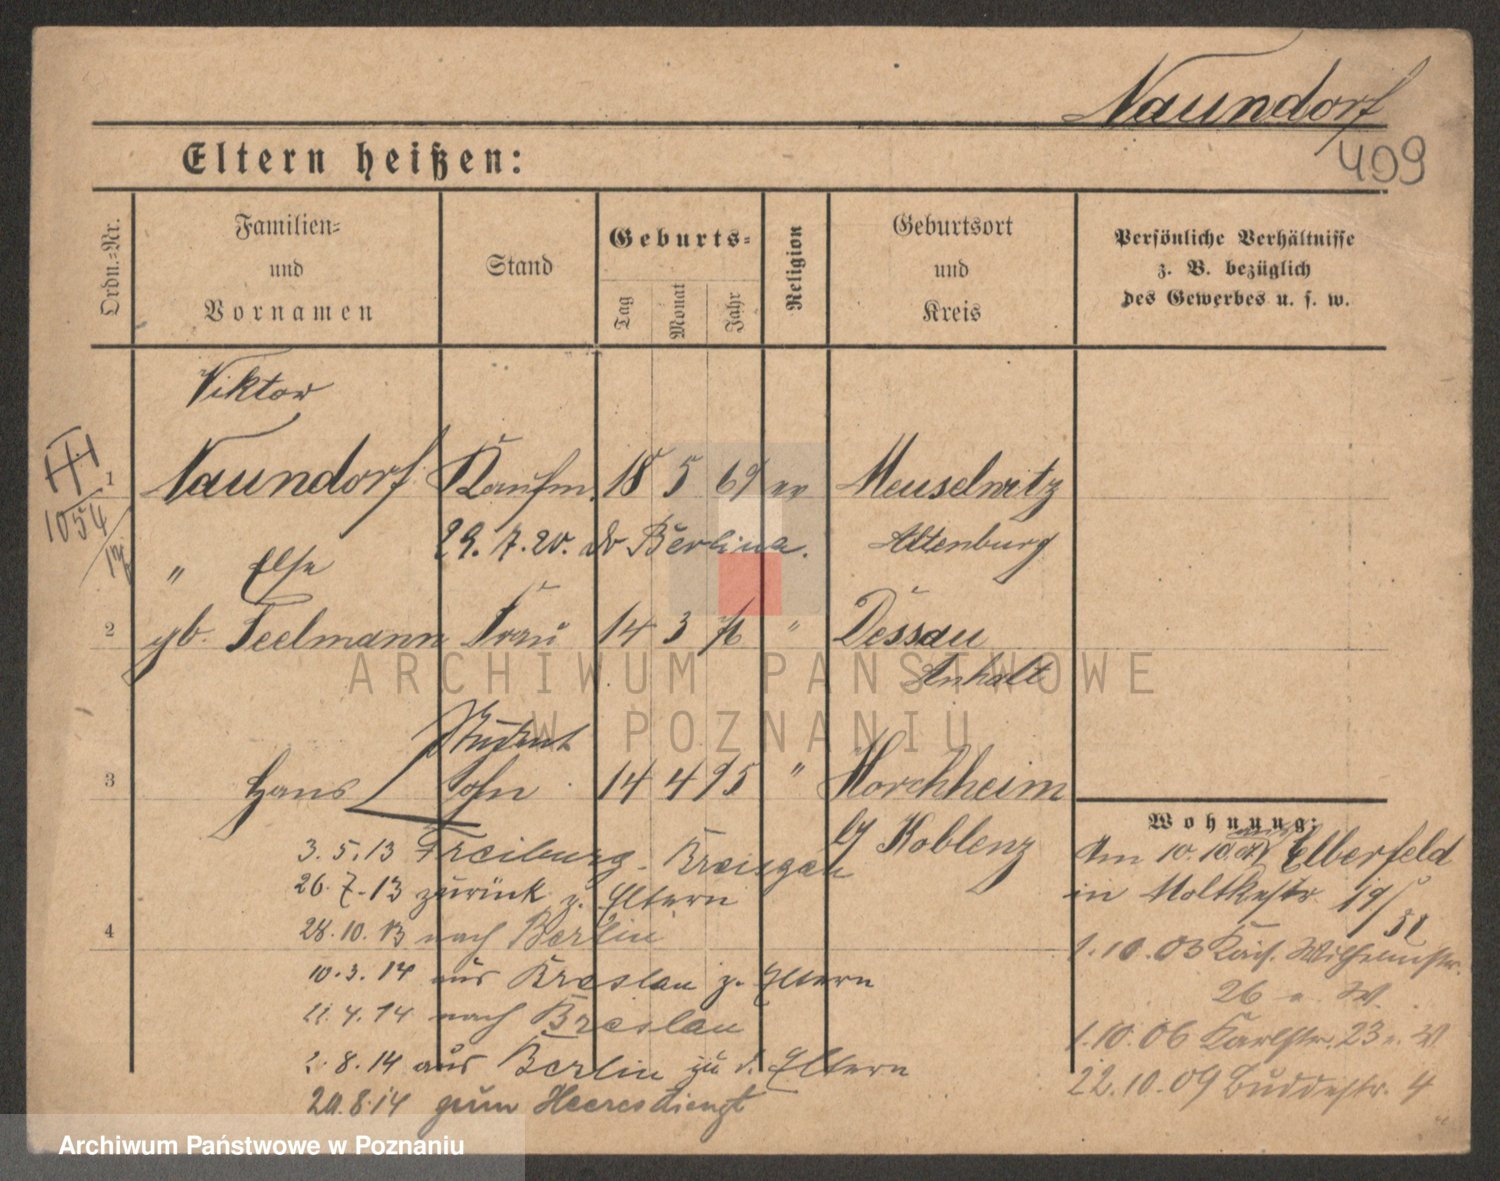 Naundorf
409
Eltern heißen:
Ordn.-Nr.
Familien-
und
Vornamen
Stand
Geburts-
Tag
Monat
Jahr
Religion
Geburtsort
und
Kreis
Persönliche Verhältnisse
z. B. bezüglich
des Gewerbes u. s. w.
Viktor
1 Naundorf Kaufm. 18 5 69 ev Meuselwitz
1054
29. 7. 20. Berlin Altenburg
" Else
2 gb. Teelmann Frau 14 3 " Dessau
Anhalt
Student
3 Hans Sohn 14 4 95 " Morchheim
Koblenz
Wohnung:
Am 10. 10. Elberfeld
in Moltkestr. 19/
3. 5. 13 Freiburg - Breisgau
26. 7. 13 zurück z. Eltern
4
28. 10. 13 nach Berlin
1. 10. 03 Kais. Wilhelmstr.
26
10. 3. 14 aus Breslau z. Eltern
21. 4. 14 nach Breslau
1. 10. 06 Karlstr. 23
2. 8. 14 aus Berlin zu d. Eltern
22. 10. 09 Buddestr. 4
29. 8. 14 zum Heeresdienst
ARCHIWUM PAŃSTWOWE
W POZNANIU
Archiwum Państwowe w Poznaniu